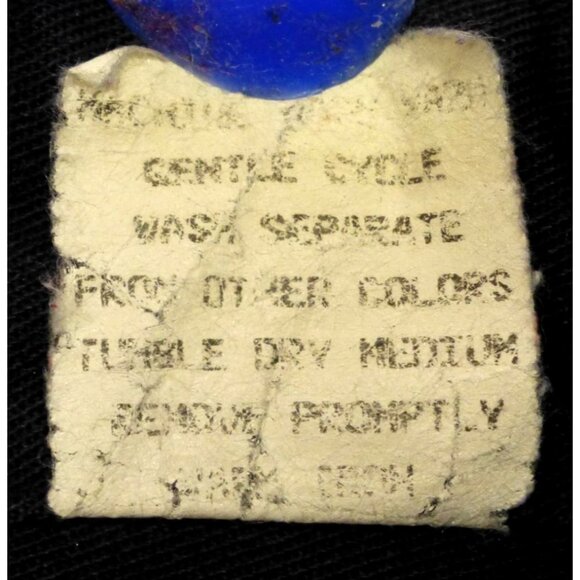 MACHINE WASH WARM
GENTLE CYCLE
WASH SEPARATE
FROM OTHER COLORS
TUMBLE DRY MEDIUM
REMOVE PROMPTLY
WARM IRON